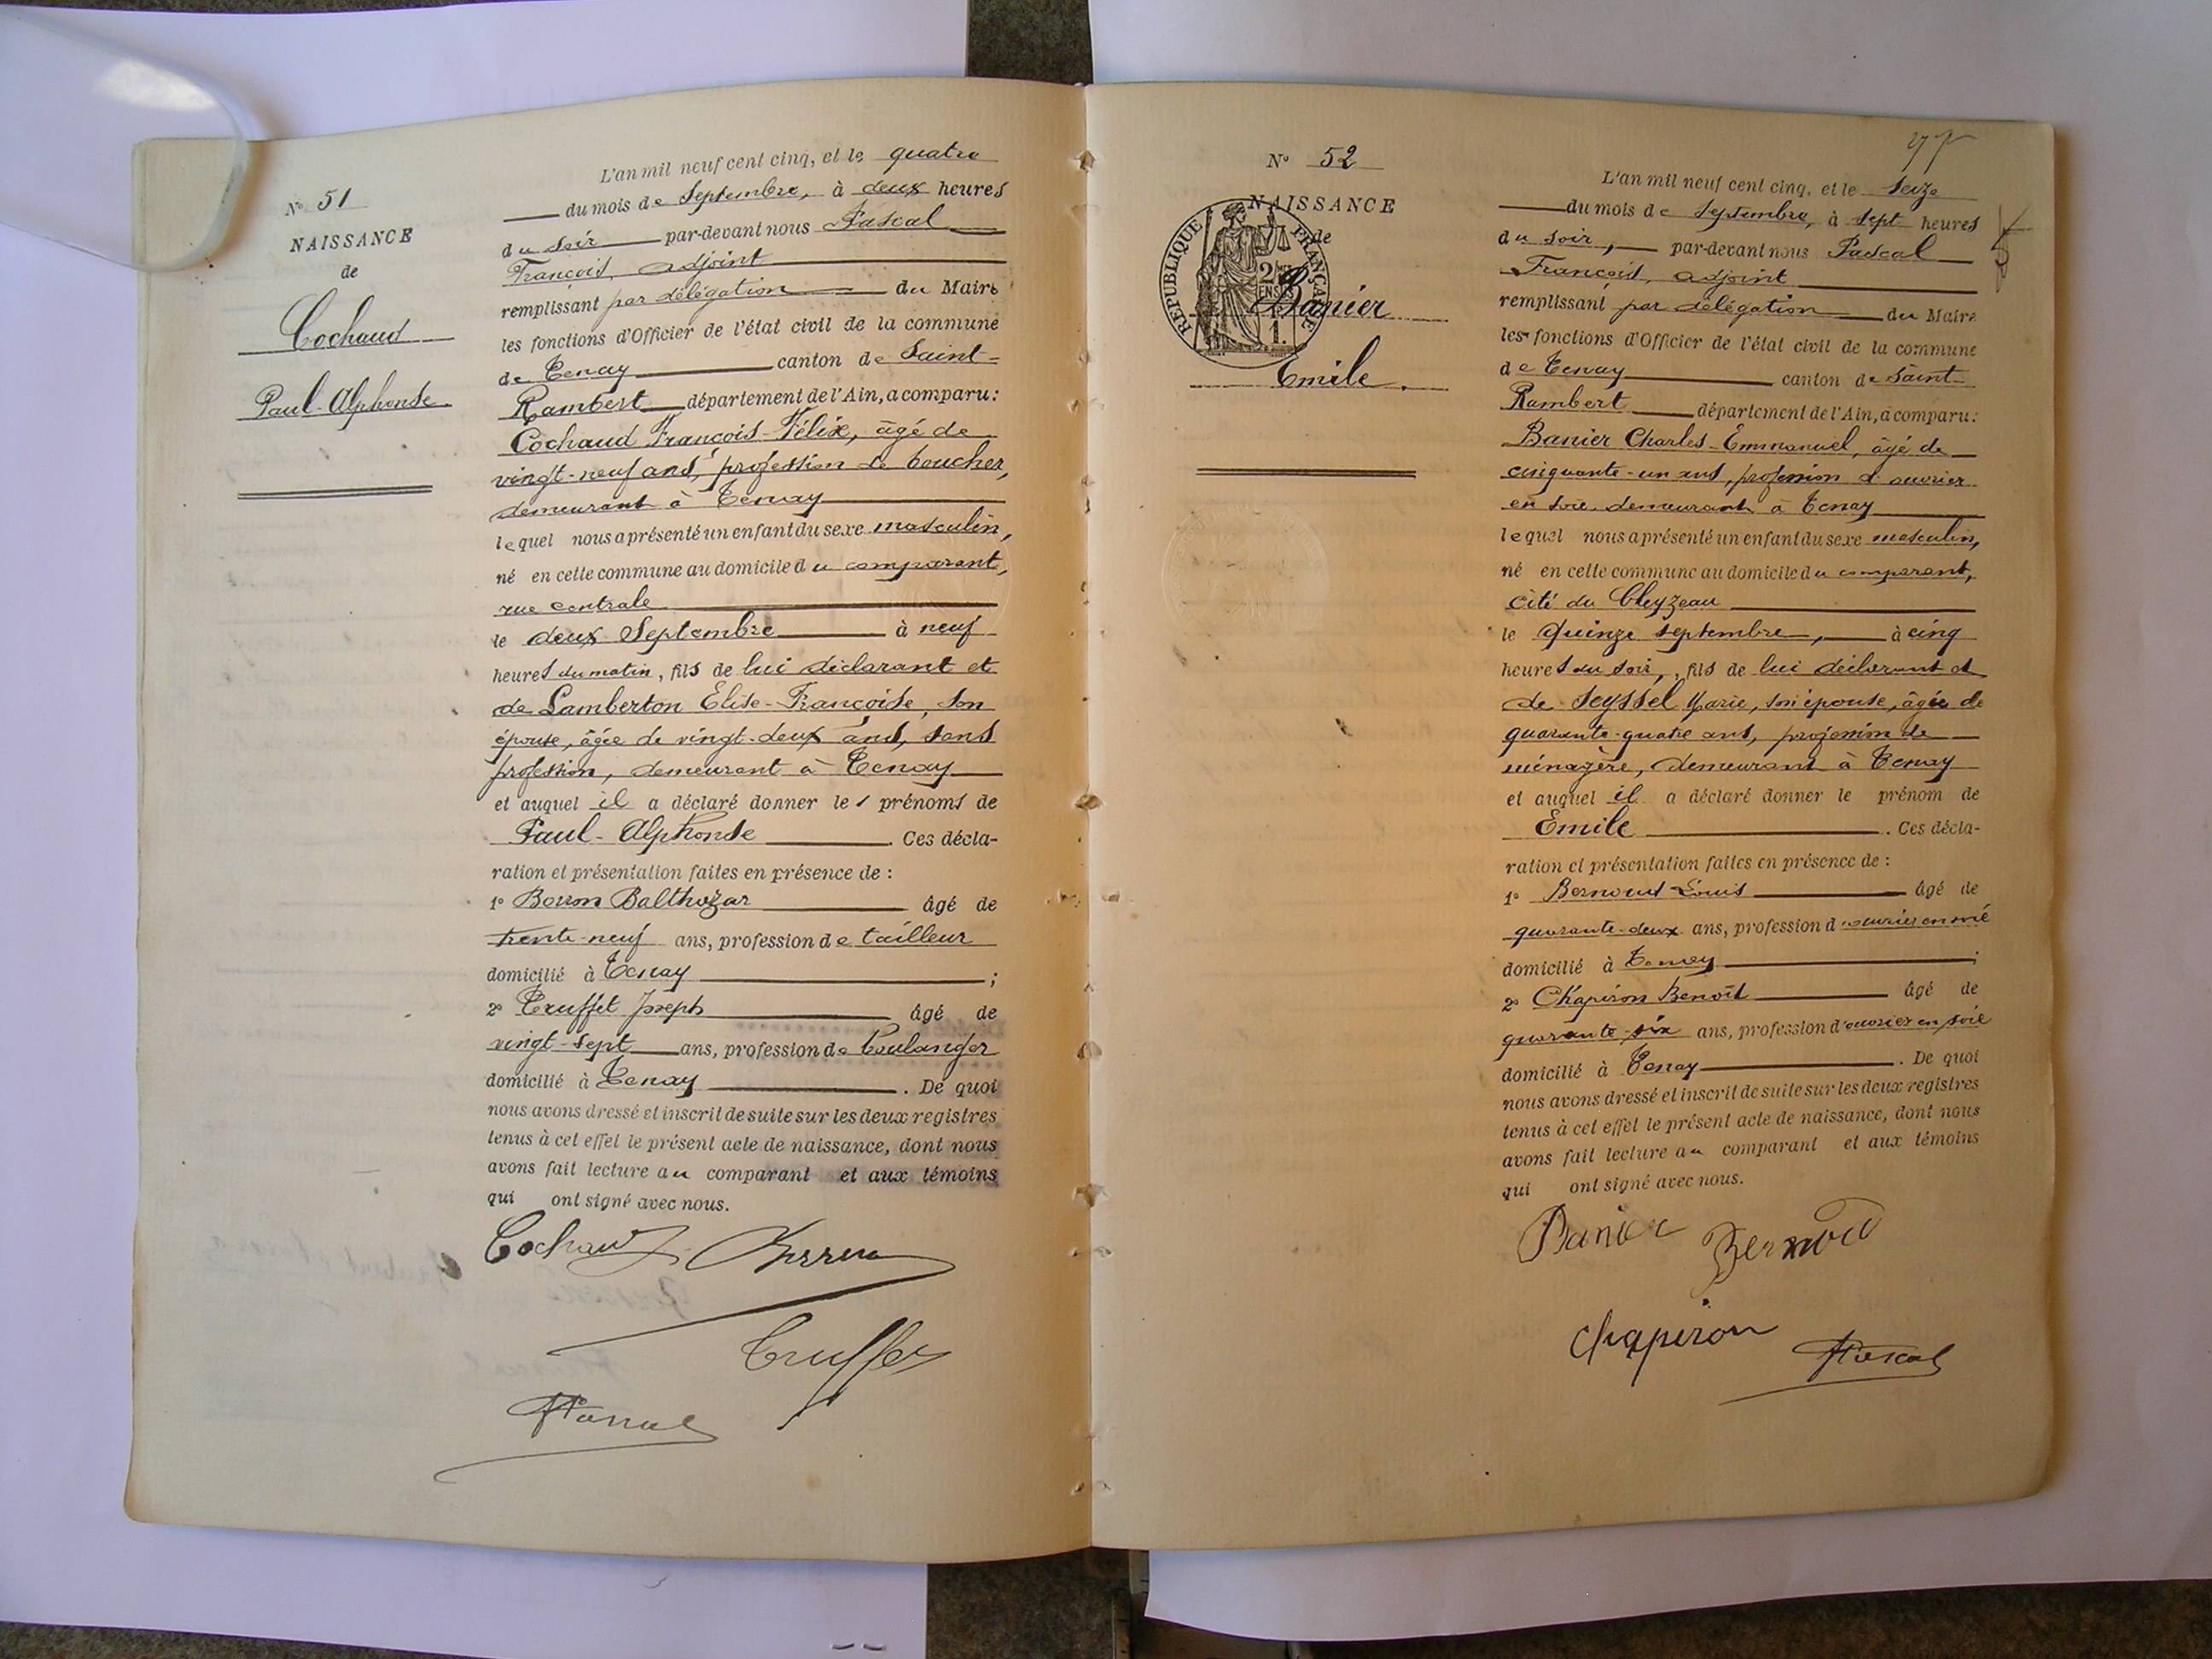 N° 51
NAISSANCE
de
Cochaud
Paul-Alphonse
L'an mil neuf cent cinq, et le quatre
du mois de Septembre, à deux heures
du soir par-devant nous Pascal
François, adjoint
remplissant par délégation du Maire
les fonctions d'Officier de l'état civil de la commune
de Tenay canton de Saint-
Rambert département de l'Ain, a comparu:
Cochaud François-Félix, âgé de
vingt-neuf ans, profession de boucher,
demeurant à Tenay
lequel nous a présenté un enfant du sexe masculin,
né en cette commune au domicile du comparant,
rue centrale
le deux Septembre à neuf
heures du matin, fils de lui déclarant et
de Lamberton Elise-Françoise, son
épouse, âgée de vingt-deux ans, sans
profession, demeurant à Tenay
et auquel il a déclaré donner les prénoms de
Paul-Alphonse. Ces décla-
ration et présentation faites en présence de :
1° Balthazar âgé de
trente-neuf ans, profession de tailleur
domicilié à Tenay ;
2° Truffet Joseph âgé de
vingt-sept ans, profession de boulanger
domicilié à Tenay. De quoi
nous avons dressé et inscrit de suite sur les deux registres
tenus à cet effet le présent acte de naissance, dont nous
avons fait lecture au comparant et aux témoins
qui ont signé avec nous.
Cochaud
Truffet
Pascal
N° 52
NAISSANCE
de
Banier
Emile.
RÉPUBLIQUE FRANÇAISE
L'an mil neuf cent cinq, et le seize
du mois de Septembre, à sept heures
du soir, par-devant nous Pascal
François, adjoint
remplissant par délégation du Maire
les fonctions d'Officier de l'état civil de la commune
de Tenay canton de Saint-
Rambert département de l'Ain, a comparu:
Banier Charles-Emmanuel, âgé de
cinquante-un ans, profession d'ouvrier
en soie, demeurant à Tenay
lequel nous a présenté un enfant du sexe masculin,
né en cette commune au domicile du comparant,
cité du Cleyzeau
le quinze septembre, à cinq
heures du soir, fils de lui déclarant et
de Seyssel Marie, son épouse, âgée de
quarante-quatre ans, profession de
ménagère, demeurant à Tenay
et auquel il a déclaré donner le prénom de
Emile. Ces décla-
ration et présentation faites en présence de :
1° Bernoud Louis âgé de
quarante-deux ans, profession d'ouvrier en soie
domicilié à Tenay ;
2° Chapiron Benoît âgé de
quarante-six ans, profession d'ouvrier en soie
domicilié à Tenay. De quoi
nous avons dressé et inscrit de suite sur les deux registres
tenus à cet effet le présent acte de naissance, dont nous
avons fait lecture au comparant et aux témoins
qui ont signé avec nous.
Banier Bernoud
Chapiron
Pascal